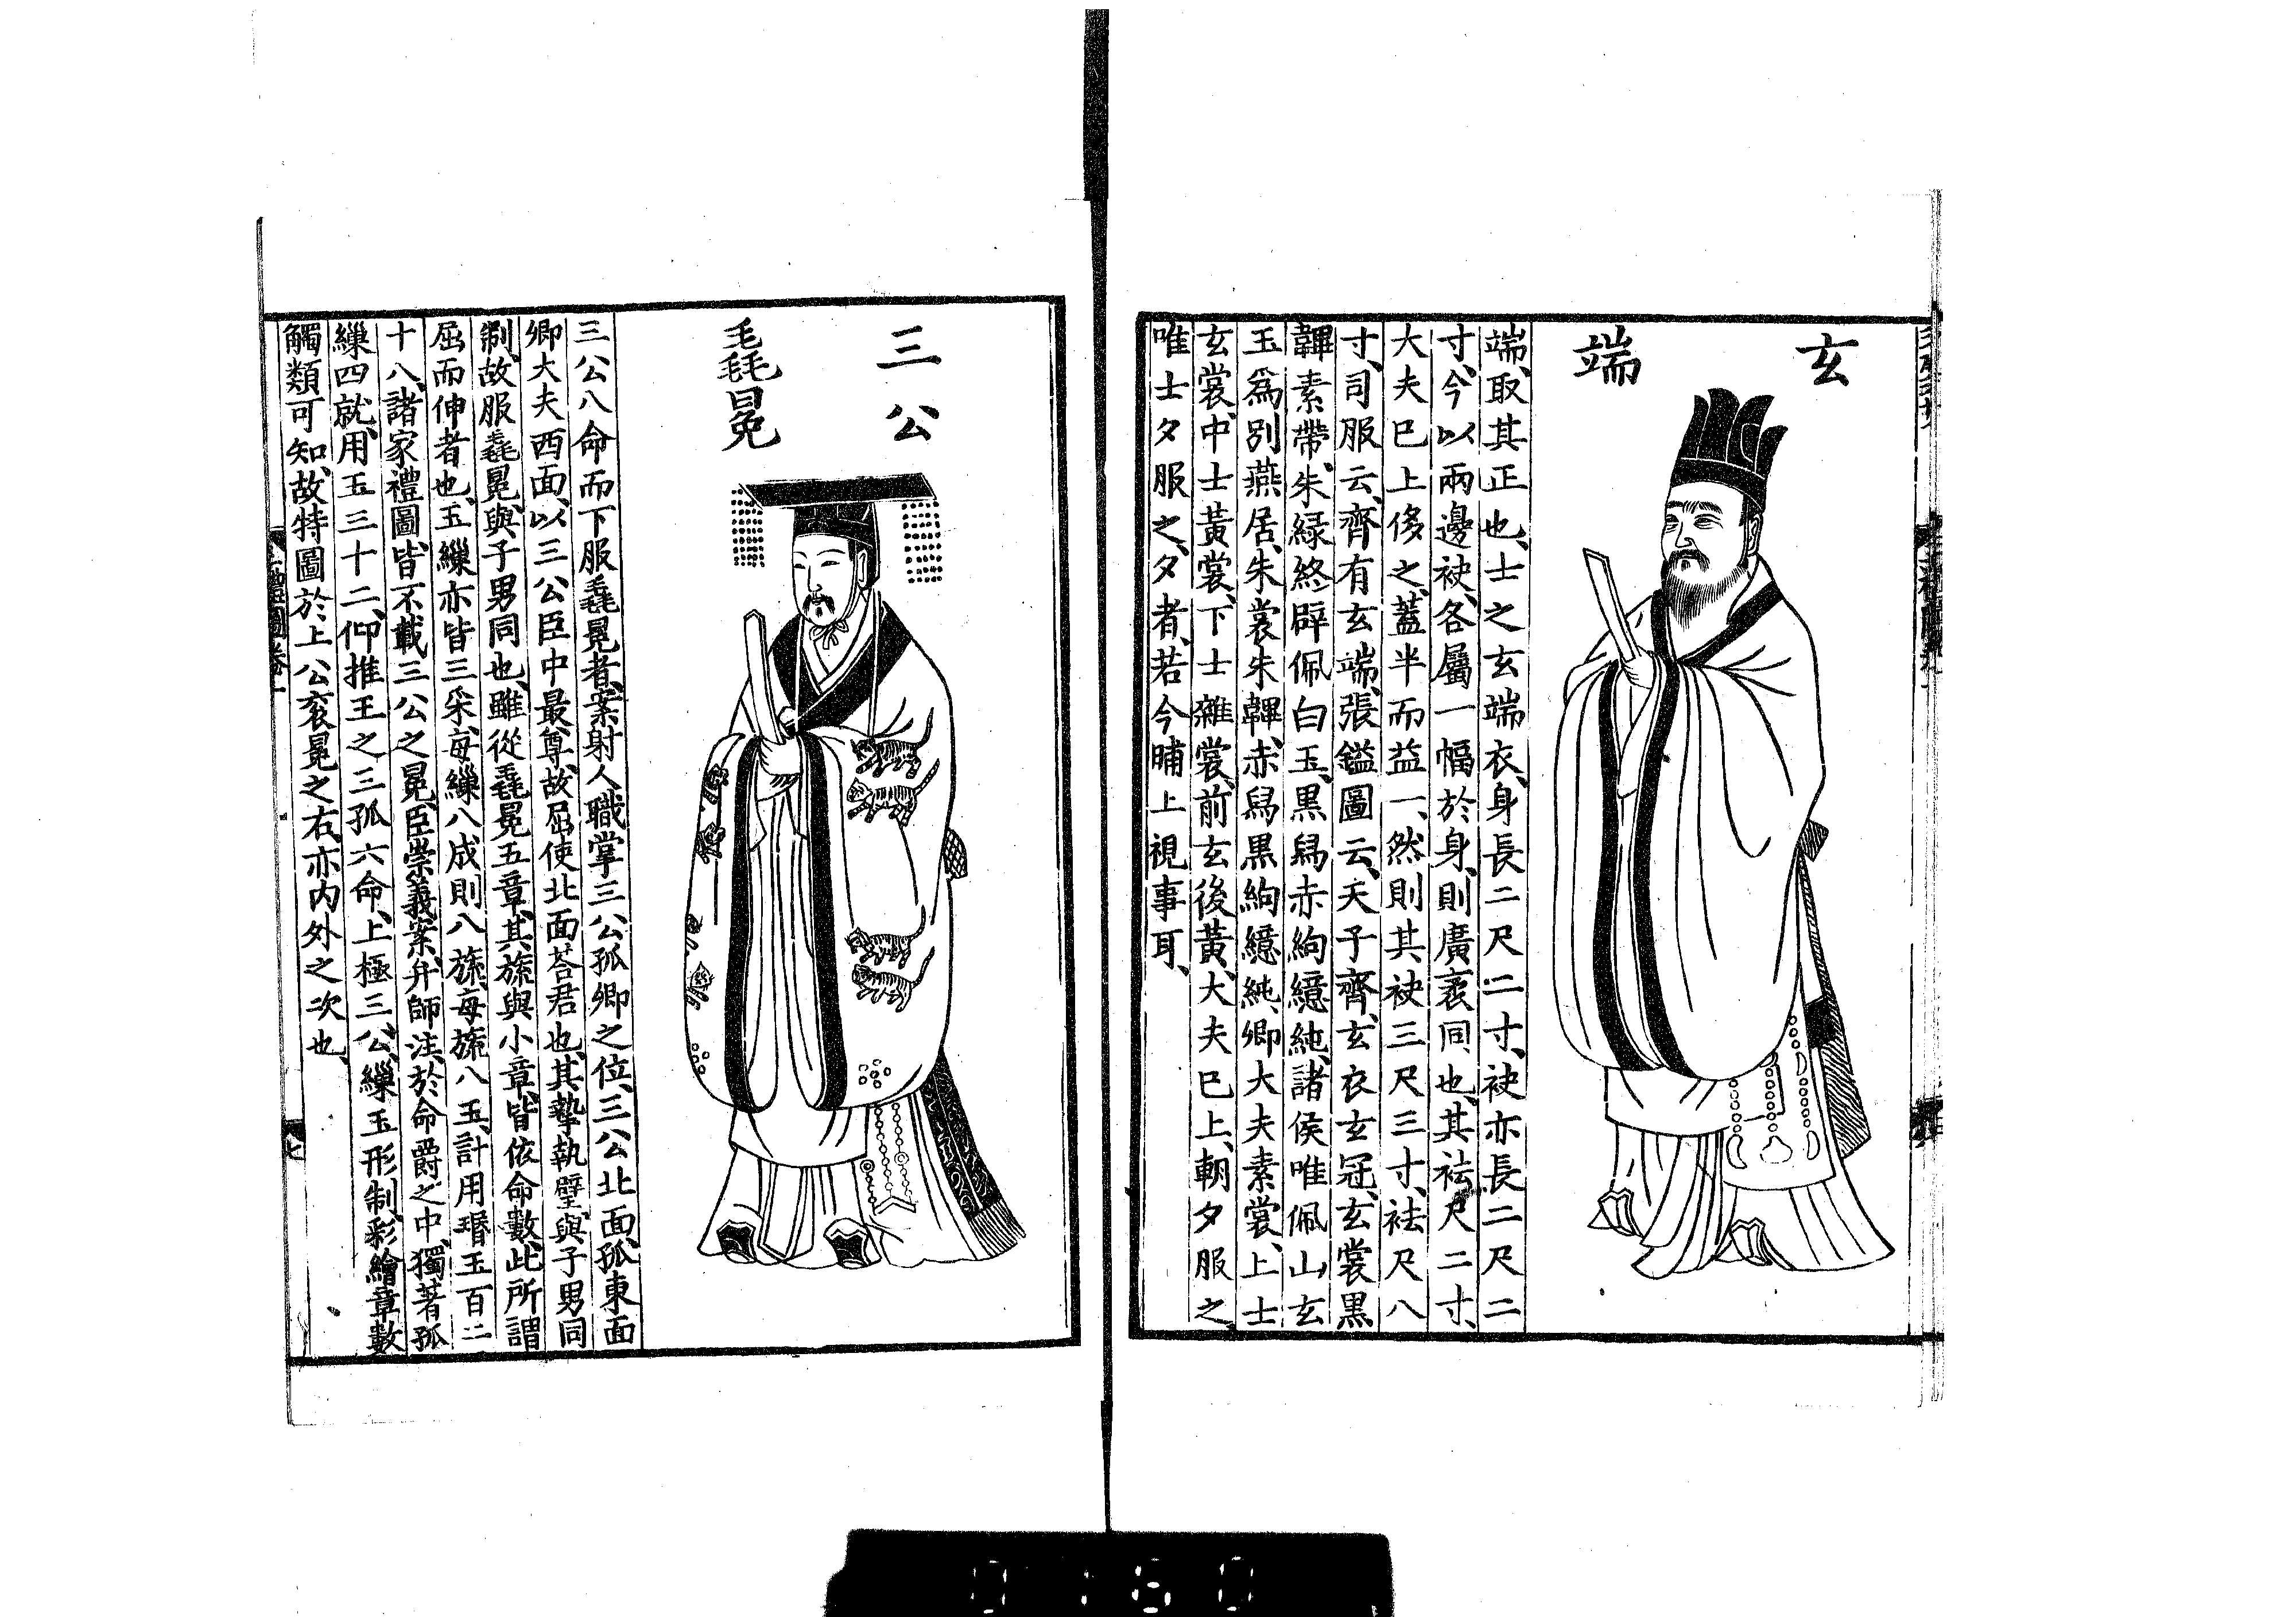 玄端
端、取其正也、士之玄端衣、身長二尺二寸、袂亦長二尺二
寸、今以兩邊袂、各屬一幅於身、則廣袤同也、其袪尺二寸、
大夫已上侈之、蓋半而益一、然則其袂三尺三寸、袪尺八
寸、司服云、齊有玄端、張鎰圖云、天子齊、玄衣玄冠、玄裳黑
韠、素帶、朱綠終辟、佩白玉、黑舄赤絇繶純、諸侯唯佩山玄
玉爲別、燕居、朱裳朱韠、赤舄黑絇繶純、卿大夫素裳、上士
玄裳、中士黃裳、下士雜裳、前玄後黃、大夫已上、朝夕服之、
唯士夕服之、夕者、若今晡上視事耳、
三公
毳冕
三公八命而下服毳冕者、案射人職掌三公孤卿之位、三公北面、孤東面
卿大夫西面、以三公臣中最尊、故屈使北面荅君也、其摯執璧、與子男同
制、故服毳冕、與子男同也、雖從毳冕五章、其旒與小章、皆依命數、此所謂
屈而伸者也、玉繅亦皆三采、每繅八成則八旒、每旒八玉、計用瑉玉百二
十八、諸家禮圖、皆不載三公之冕、臣崇義案、弁師注、於命爵之中、獨著孤
繅四就、用玉三十二、仰推王之三孤六命、上極三公、繅玉形制、彩繪章數
觸類可知、故特圖於上公袞冕之右、亦内外之次也、
禮圖卷一
七
0160